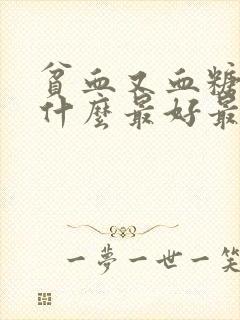 貧血又血糖
什麼最好最
一夢一世一笑